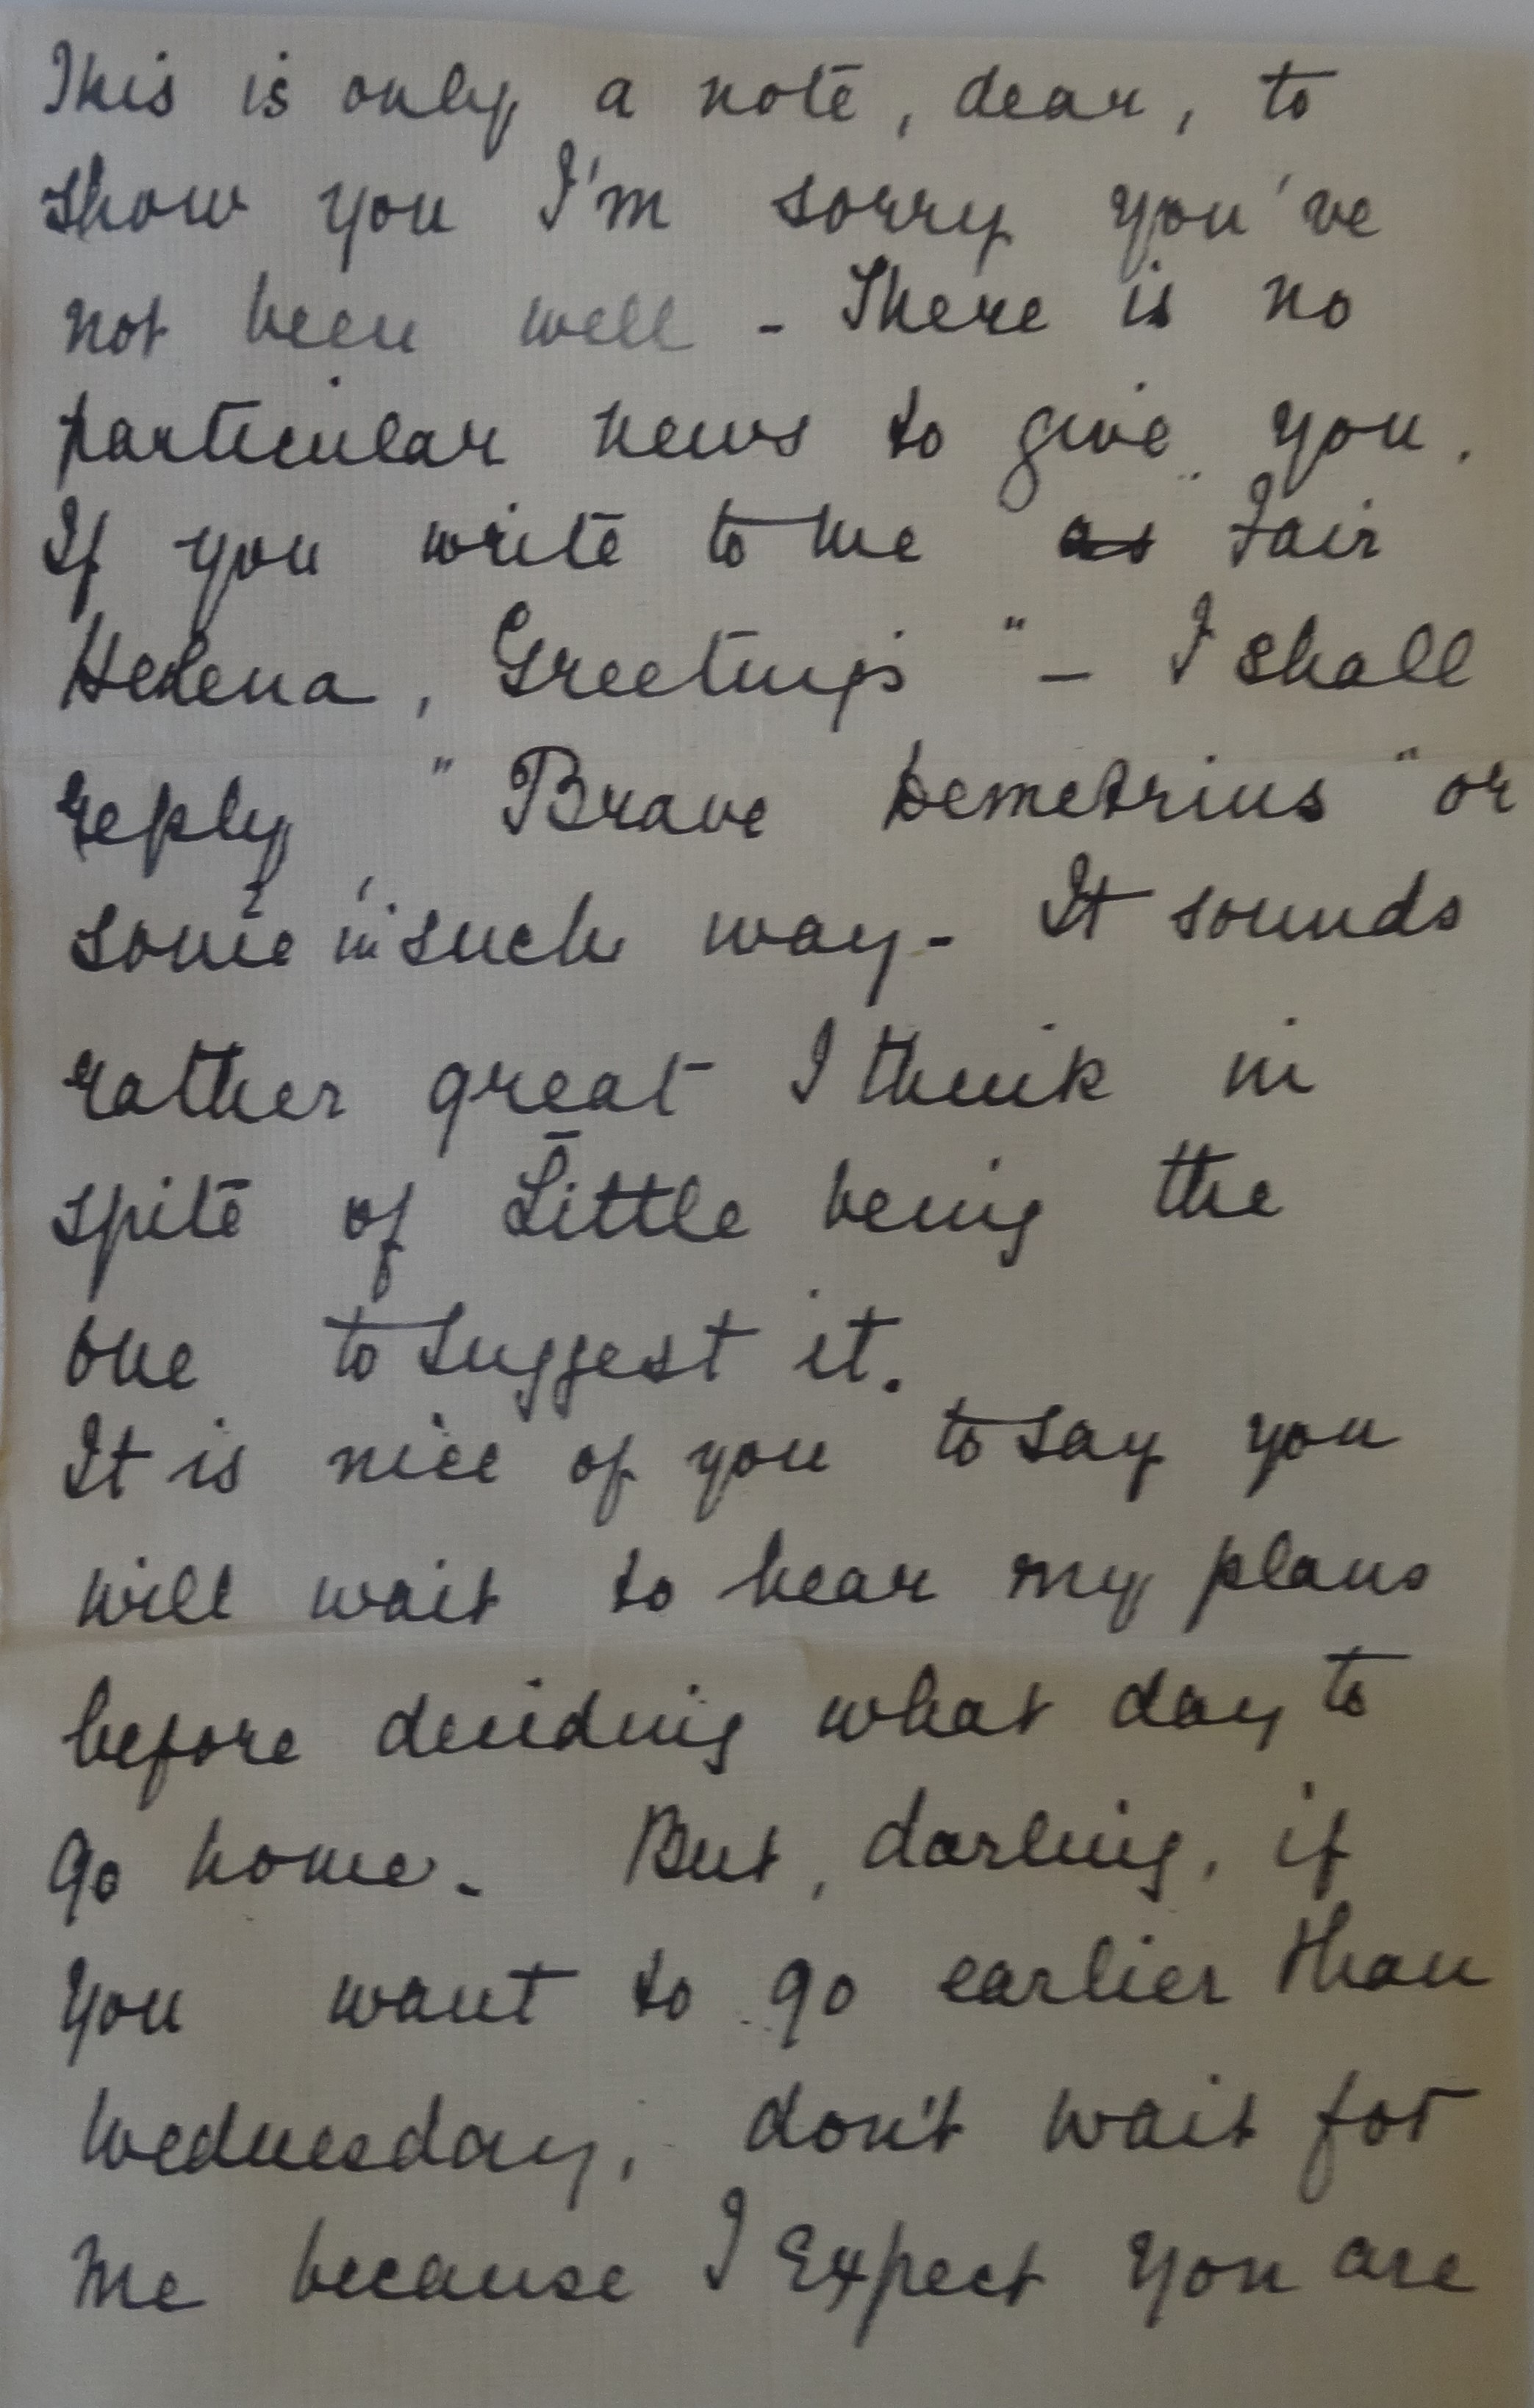 This is only a note, dear, to
show you I'm sorry you've
not been well - There is no
particular news to give you.
If you write to me "as Fair
Helena, Greetings" - I shall
reply "Brave Demetrius" or
some in such way - It sounds
rather great I think in
spite of Little being the
one to suggest it.
It is nice of you to say you
will wait to hear my plans
before deciding what day to
go home. But, darling, if
you want to go earlier than
Wednesday, don't wait for
me because I expect you are